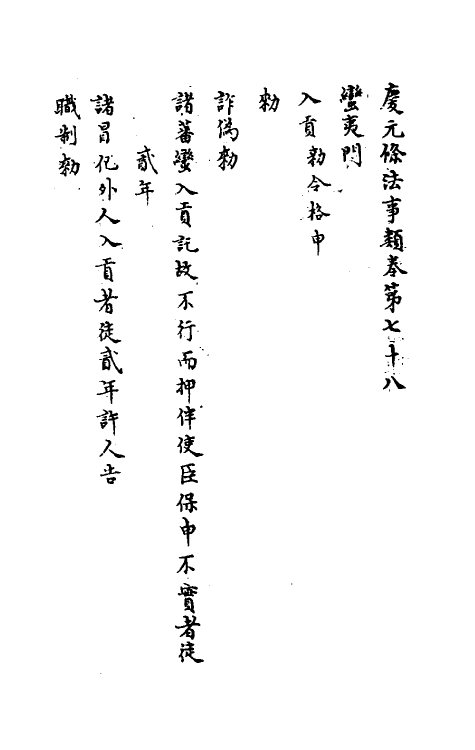 慶元條法事類卷第七十八
蠻夷門
入貢勅令格申
勅
詐偽勅
諸蕃蠻入貢託故不行而押伴使臣保申不實者徒
貳年
諸冒化外人入貢者徒貳年許人告
職制勅